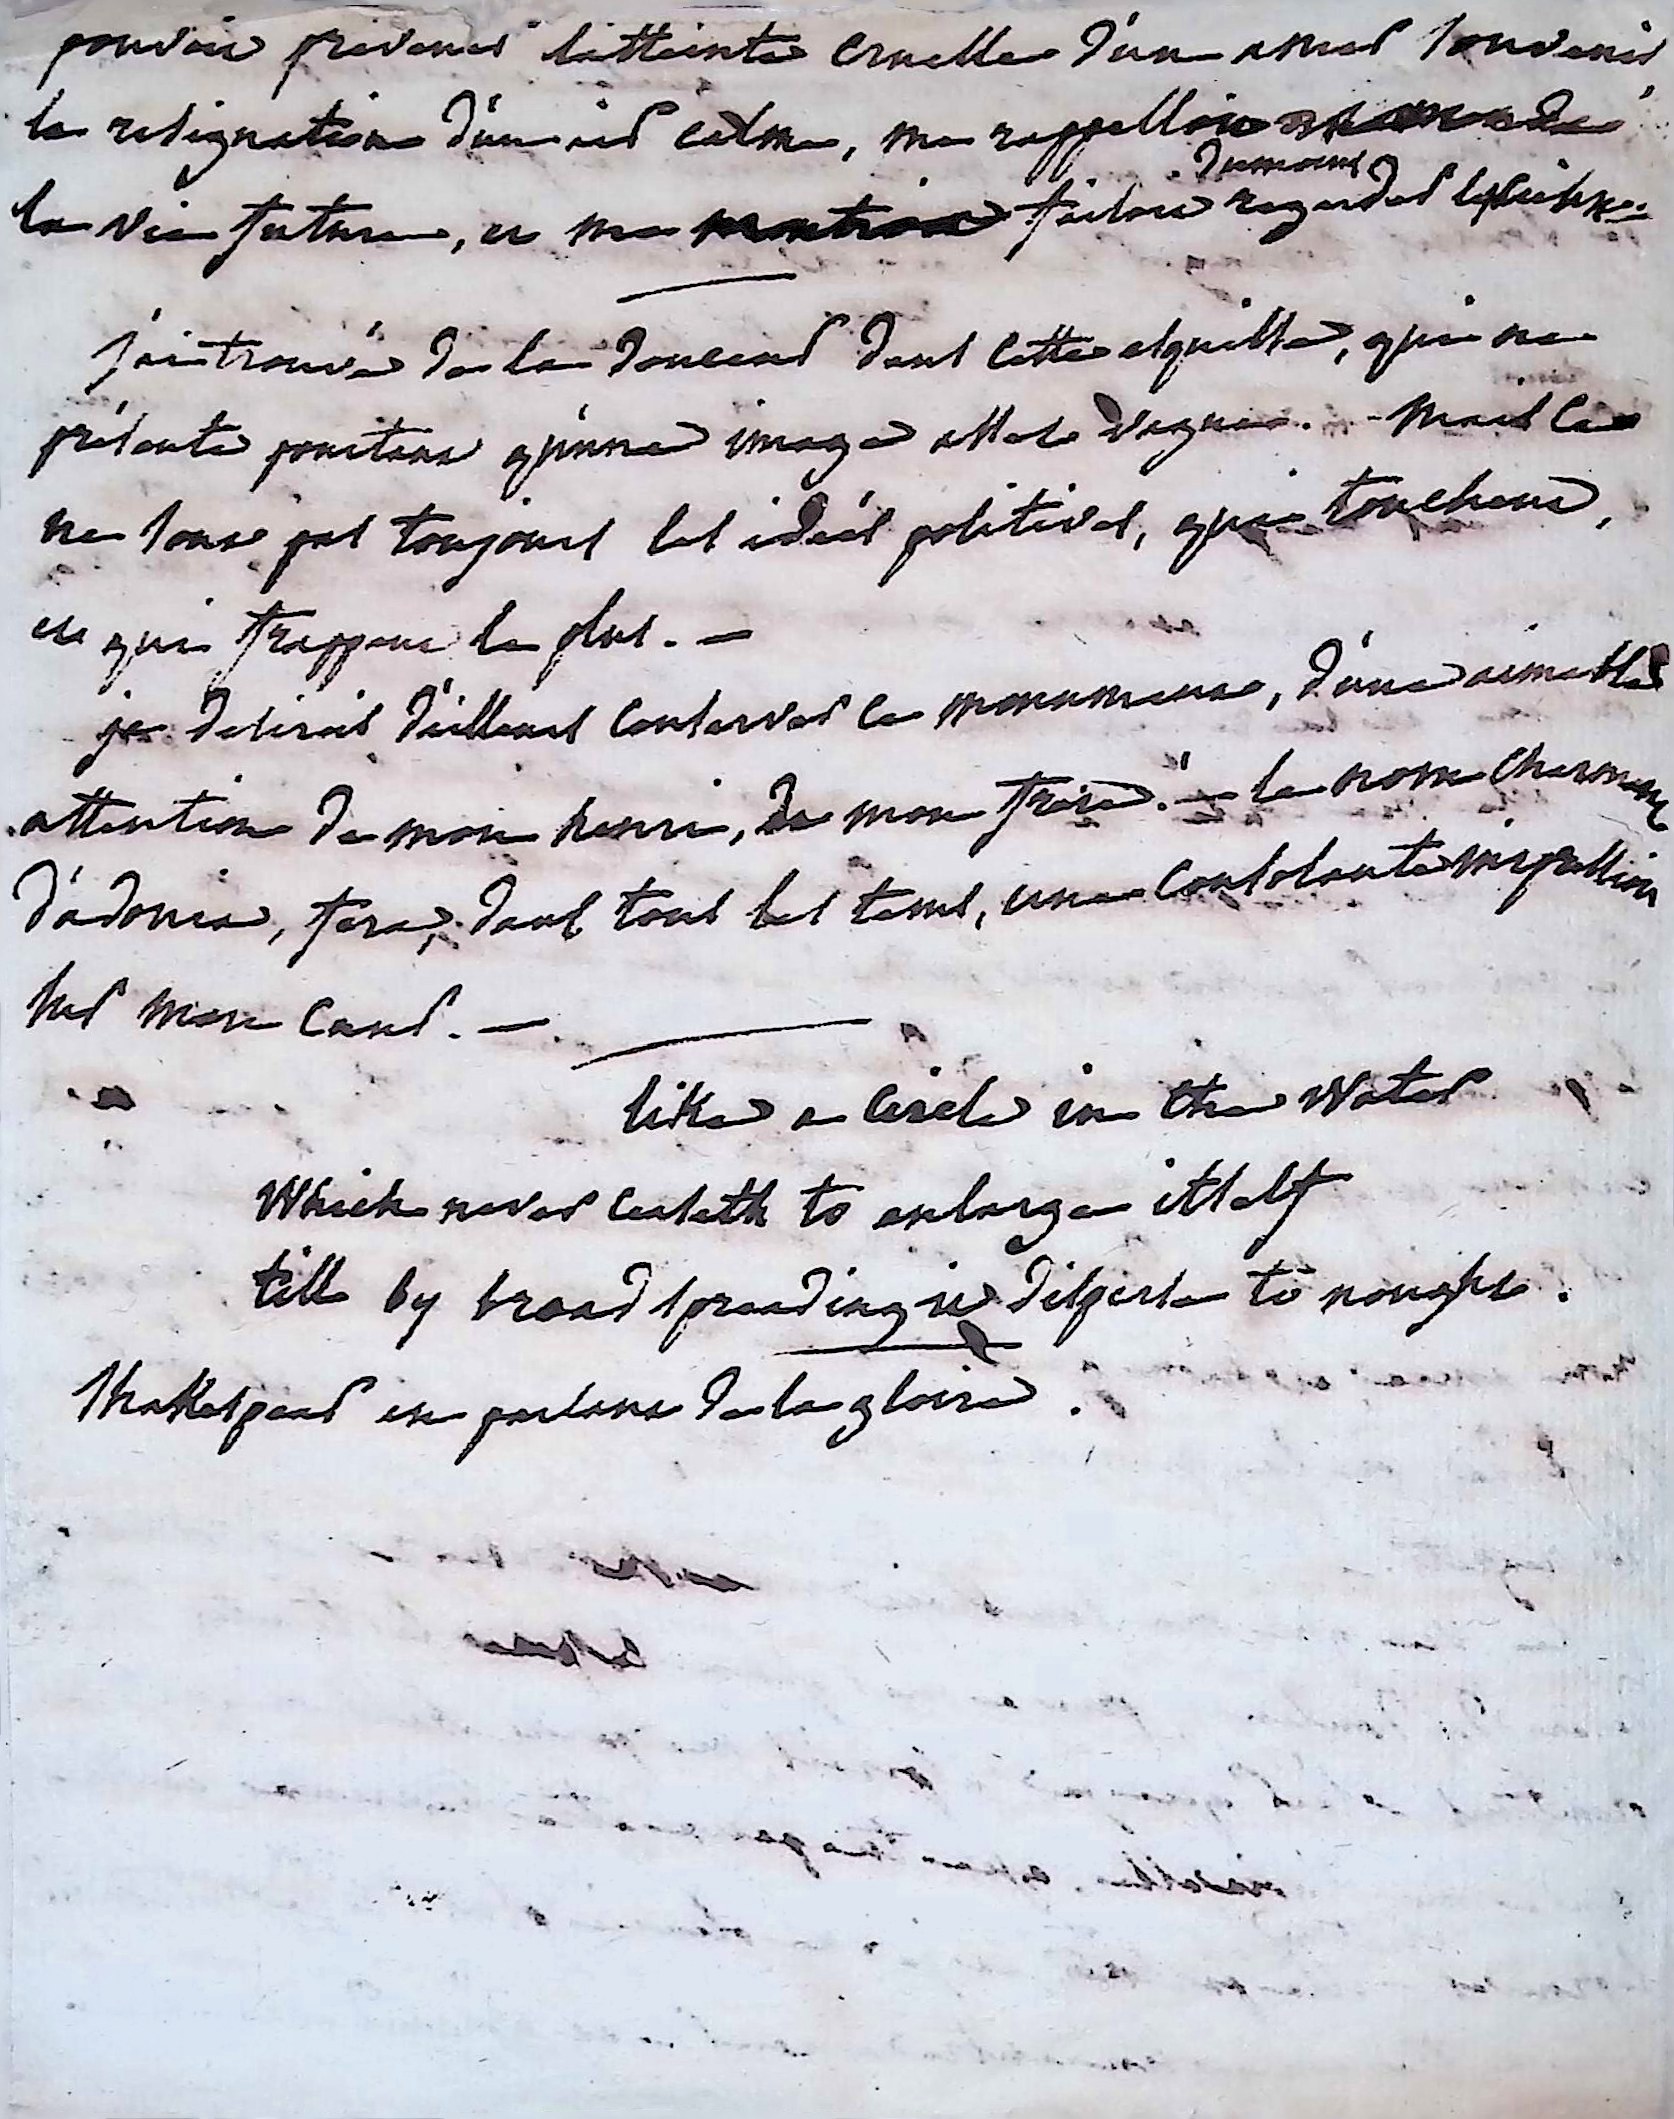 pouvoir prévenir l'atteinte cruelle d'un amer souvenir
la resignation d'un air calme, me rappelloit
la vie future, et me faisoit regarder
dumoins
j'ai trouvé de la douceur dans cette esquisse, qui ne
présente pourtant qu'une image assez vague. - Mais ce
ne sont pas toujours les idées positives, qui touchent,
et qui frappent le plus. -
je desirois d'ailleurs conserver ce monument, d'une aimable
attention de mon henri, de mon frère. - le nom charmant
d'adonia, fera, dans tous les tems, une consolante impression
sur mon cœur. -
like a circle in the Water
Which never ceaseth to enlarge itself
till by broad spreading it disperse to nought.
Shakespear en parlant de la gloire.